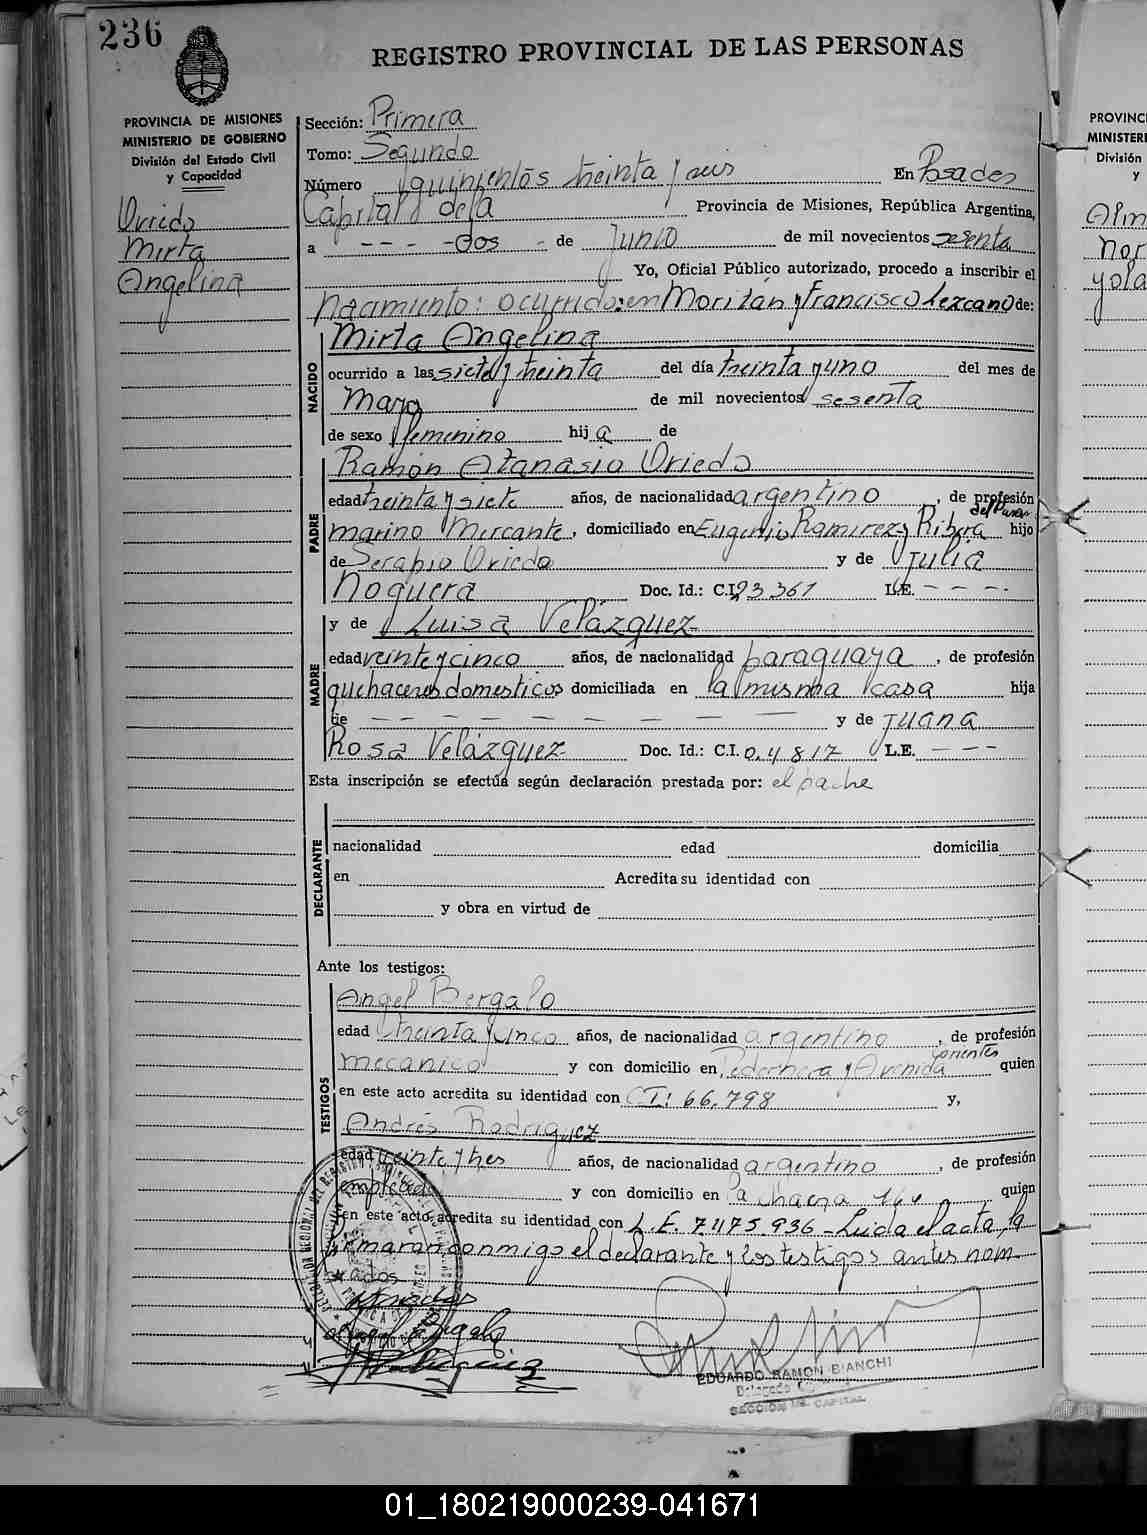 236
REGISTRO PROVINCIAL DE LAS PERSONAS
PROVINCIA DE MISIONES
MINISTERIO DE GOBIERNO
División del Estado Civil
y Capacidad
Oviedo
Mirta
Angelina
Sección: Primera
Tomo: Segundo
Número quinientos treinta y seis En Posadas
Capital de la Provincia de Misiones, República Argentina,
a - - - - dos - de Junio de mil novecientos sesenta
Yo, Oficial Público autorizado, procedo a inscribir el
Nacimiento: ocurrido: en y Francisco Lezcano de:
NACIDO
Mirta Angelina
ocurrido a las siete y treinta del día treinta y uno del mes de
Mayo de mil novecientos sesenta
de sexo femenino hija de
PADRE
Ramón Atanasio Oviedo
edad treinta y siete años, de nacionalidad argentino, de profesión
marino Mercante, domiciliado en Eugenio Ramirez y Ribera hijo
de Serapio Oviedo y de Julia
Noguera Doc. Id.: C.I. 93.361 L.E. - - -
y de Luisa Velázquez
MADRE
edad veinte y cinco años, de nacionalidad paraguaya, de profesión
quehaceres domesticos domiciliada en la misma casa hija
de - - - - - - - - - y de Juana
Rosa Velázquez Doc. Id.: C.I. 04817 L.E. - - -
Esta inscripción se efectúa según declaración prestada por: el padre
DECLARANTE
nacionalidad edad domicilia
en Acredita su identidad con
y obra en virtud de
Ante los testigos:
TESTIGOS
Angel Bergalo
edad treinta y cinco años, de nacionalidad argentino, de profesión
mecanico y con domicilio en Pedernera y Avenida quien
en este acto acredita su identidad con C.I: 66.798 y,
Andrés Rodriguez
edad veinte y tres años, de nacionalidad argentino, de profesión
empleado y con domicilio en 164 quien
en este acto acredita su identidad con L.E. 7.475.936 - Leida el acta, la
firmaran conmigo el declarante y los testigos antes nom-
brados
EDUARDO RAMON BIANCHI
Delegado
SECCION CAPITAL
PROVINC
MINISTERI
División
y
01_180219000239-041671